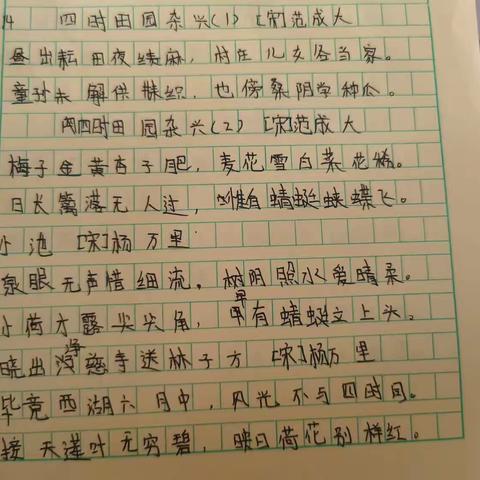 14 四时田园杂兴(1) [宋]范成大
昼出耘田夜绩麻,村庄儿女各当家。
童孙未解供耕织,也傍桑阴学种瓜。
四时田园杂兴(2) [宋]范成大
梅子金黄杏子肥,麦花雪白菜花稀。
日长篱落无人过,惟有蜻蜓蛱蝶飞。
小池 [宋]杨万里
泉眼无声惜细流,树阴照水爱晴柔。
小荷才露尖尖角,早有蜻蜓立上头。
晓出净慈寺送林子方 [宋]杨万里
毕竟西湖六月中,风光不与四时同。
接天莲叶无穷碧,映日荷花别样红。